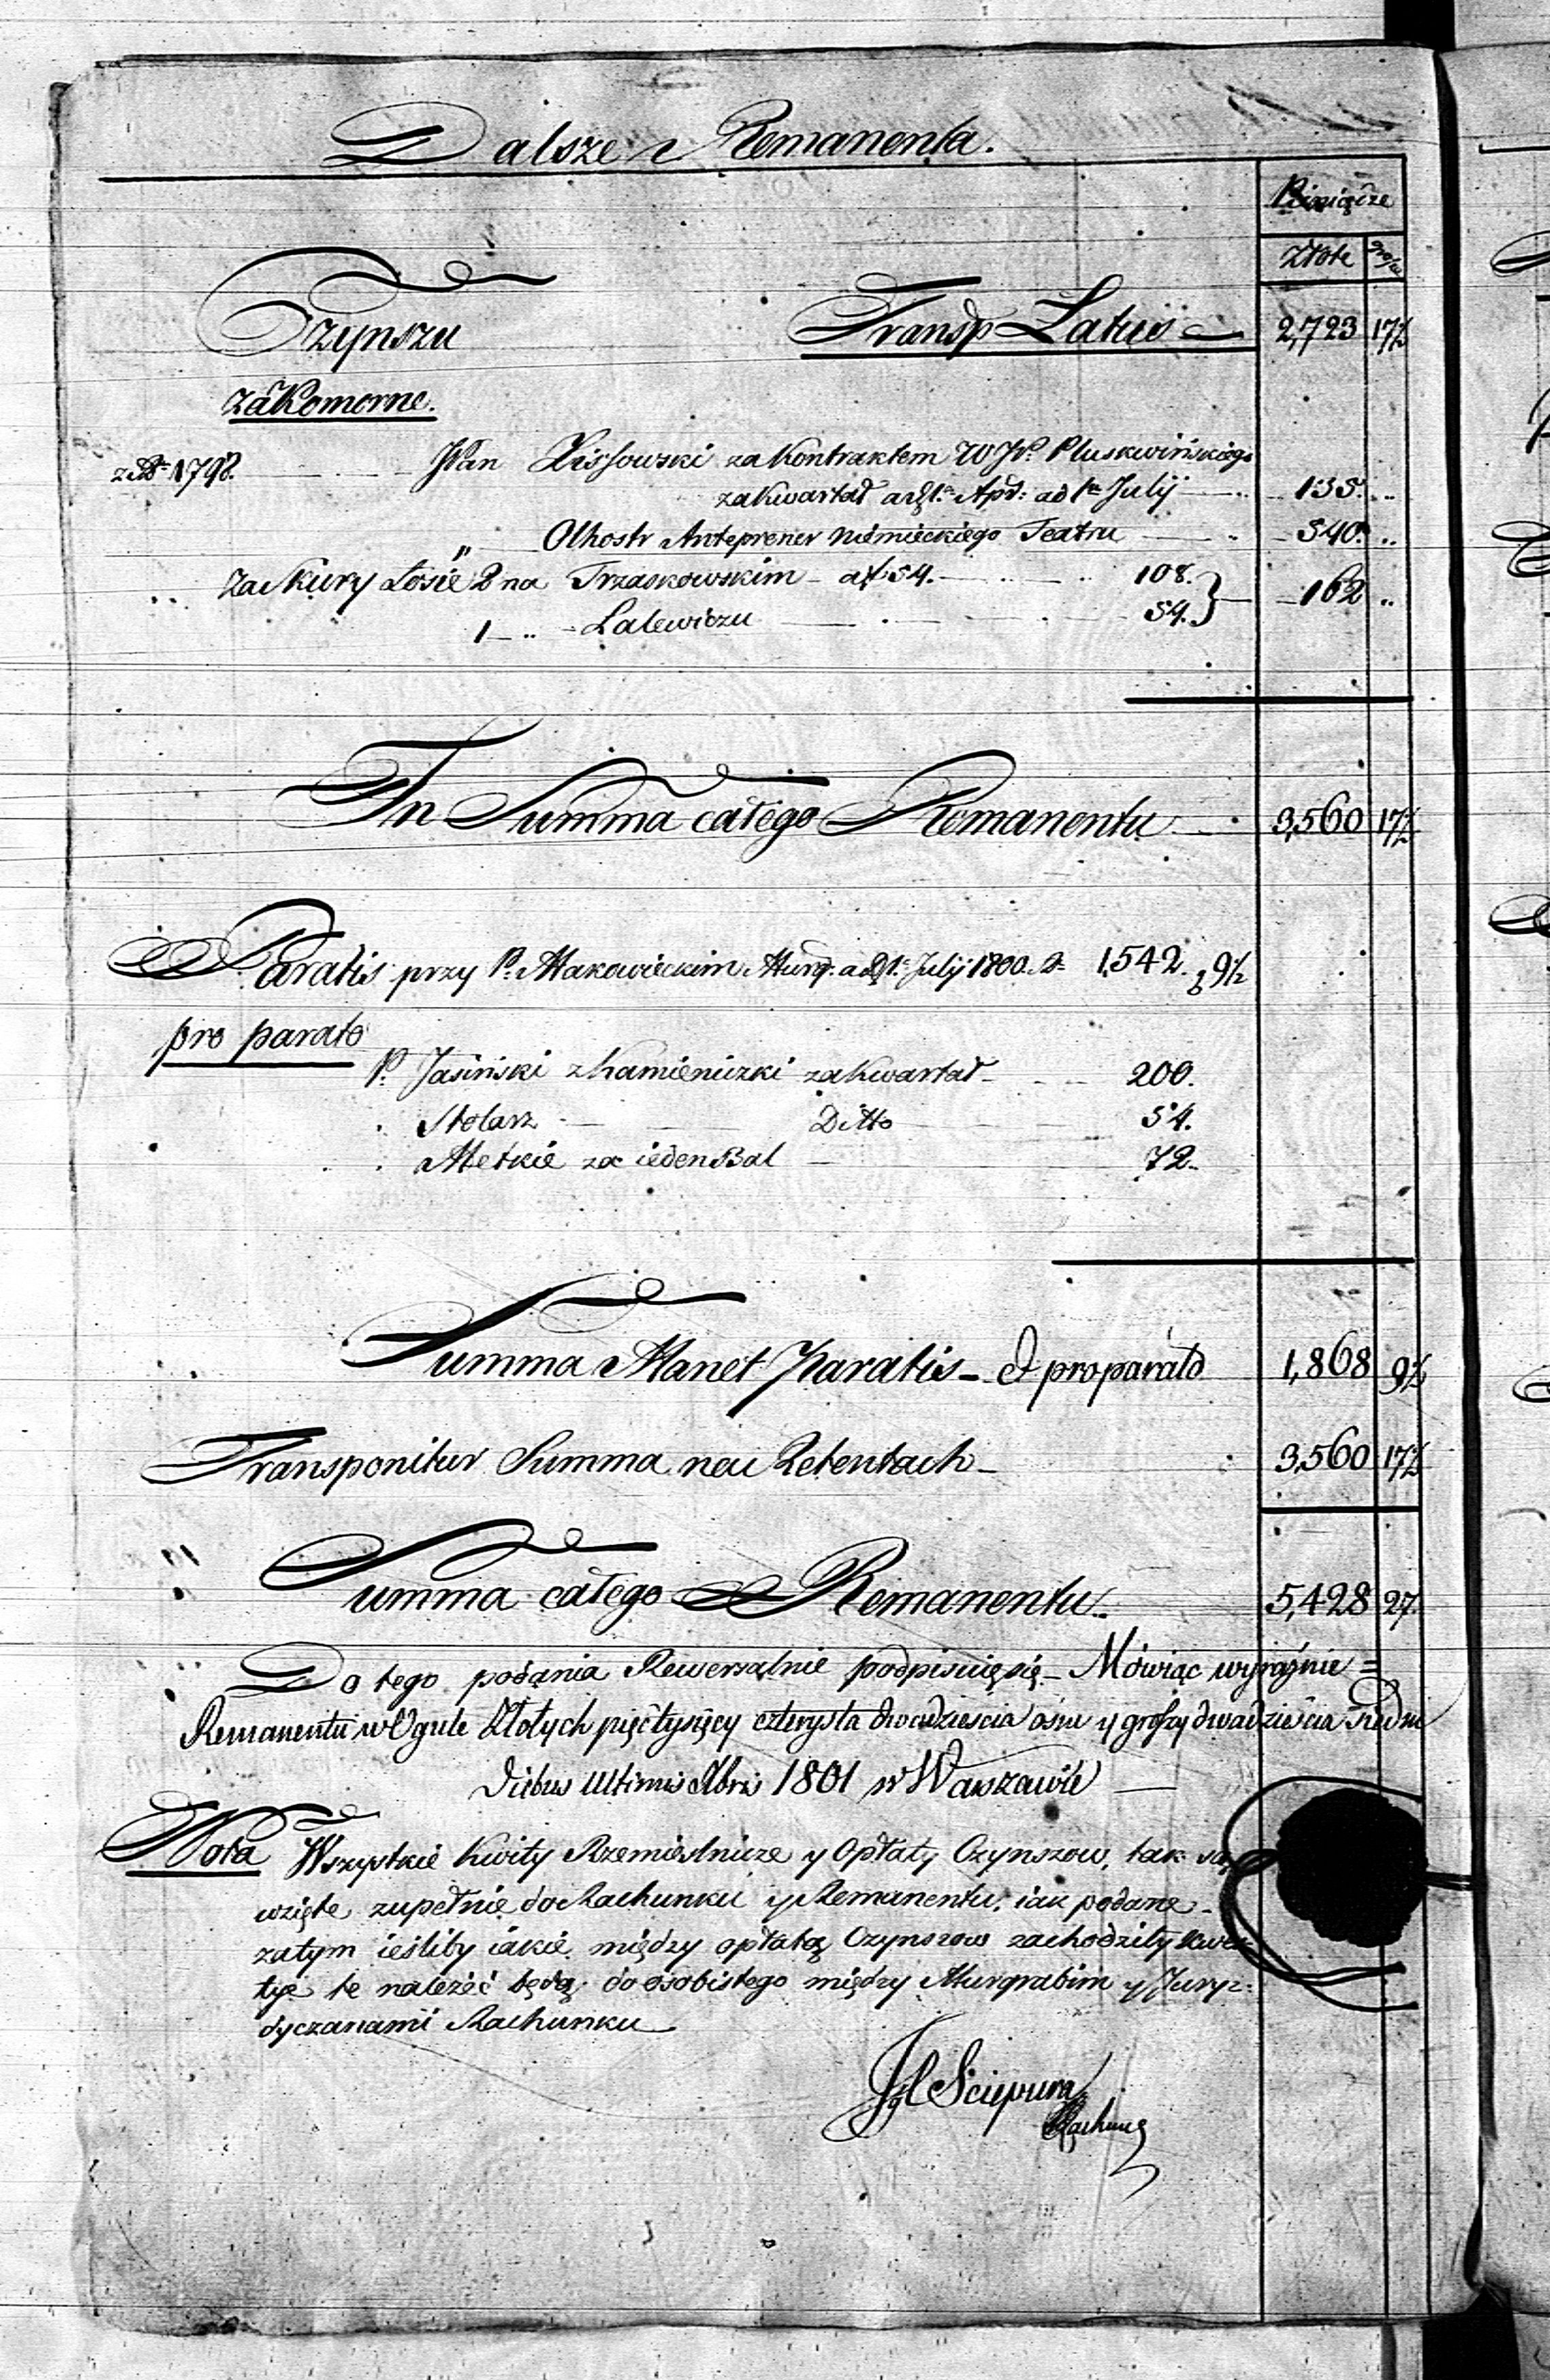 Dalsze Remanenta.
Pieniądze
Złote grosze
Czynszu Transp Latus 2,723 17½
za Komorne.
z Ao 1798. JPan Lissowski za Kontraktem W JP. Pluskwińskiego
za Kwartał a 1a Apr: ad 1m Julij 135. ..
" Olhostr Anteprener Niemieckiego Teatru 540. ..
za Kury Łosie 2 na Trzaskowskim a f 54. 108.
1 .. Lalewiczu 54. } 162 ..
In Summa całego Remanentu 3,560 17½
Paratis przy P. Makowieckim Murg: a 1a Julij 1800. 1,542. g 9½
pro parato
P. Jasiński z Kamieniczki za Kwartał 200.
Stolarz Ditto 54.
Metkie za ieden Bal 72.
Summa Manet Paratis et pro parato 1,868 9½
Transponitur Summa na Retentach 3,560 17½
Summa całego Remanentu 5,428 27.
Do tego podania Rewersalnie podpisuię się Mówiąc wyraźnie =
Remanentu w Ogule Złotych pięć tysięcy czterysta dwadzieścia ośm y groszy dwadzieścia siedm
Diebus Ultimis Xbris 1801 w Warszawie
Nota Wszystkie Kwity Rzemieślnicze y Opłaty Czynszow, tak są
wzięte zupełnie do Rachunku y Remanentu, iak podane
zatym ieśliby iakie między opłatą Czynszow zachodziły Kwes
tye te należeć będą do osobistego między Murgrabim y Juryz=
dyczanami Rachunku
Sciepura